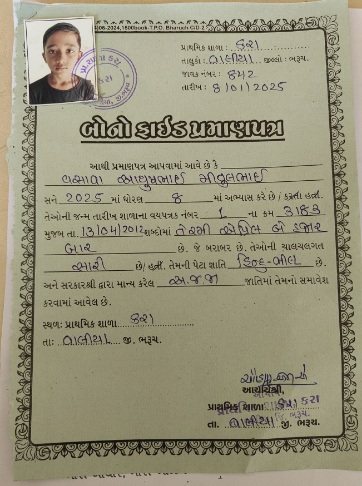 06-2024,1500book-T.P.O. Bharuch GO.2
પ્રાથમિક શાળા : કરા
તાલુકો: વાલીયા જીલ્લો: ભરૂચ.
જાવક નંબર : ૪૫૨
તારીખ : 8/01/2025
બોનોફાઈડ પ્રમાણપત્ર
આથી પ્રમાણપત્ર આપવામાં આવે છે કે
વસાવા આયુષભાઈ
સને 2025 માં ધોરણ 8 માં અભ્યાસ કરે છે / કરતા હતા.
તેઓની જન્મ તારીખ શાળાના વયપત્રક નંબર 1 ના ક્રમ 3183
મુજબ તા. 13/04/2012 શબ્દોમાં તેરમી એપ્રિલ બે હજાર
બાર છે. જે બરાબર છે. તેઓની ચાલચલગત
સારી છે/ હતી. તેમની પેટા જ્ઞાતિ હિન્દુ-ભીલ છે.
અને સરકારશ્રી દ્વારા માન્ય કરેલ અ.જ.જા જાતિમાં તેમનો સમાવેશ
કરવામાં આવેલ છે.
સ્થળ: પ્રાથમિક શાળા કરા
તા: વાલીયા જી. ભરૂચ.
આચાર્યશ્રી,
પ્રાથમિક શાળા કરા
તા. વાલીયા જી. ભરૂચ.